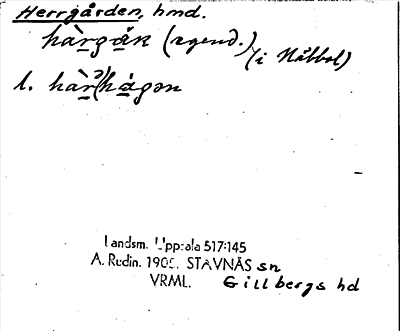 Herrgården, hmd.
hàrgåk (agend.) (i Nåbbol)
l. hàr(ə)hágən
Landsm. Uppsala 517:145
A. Rudin. 190 . STAVNÄS sn
VRML. Gillbergs hd